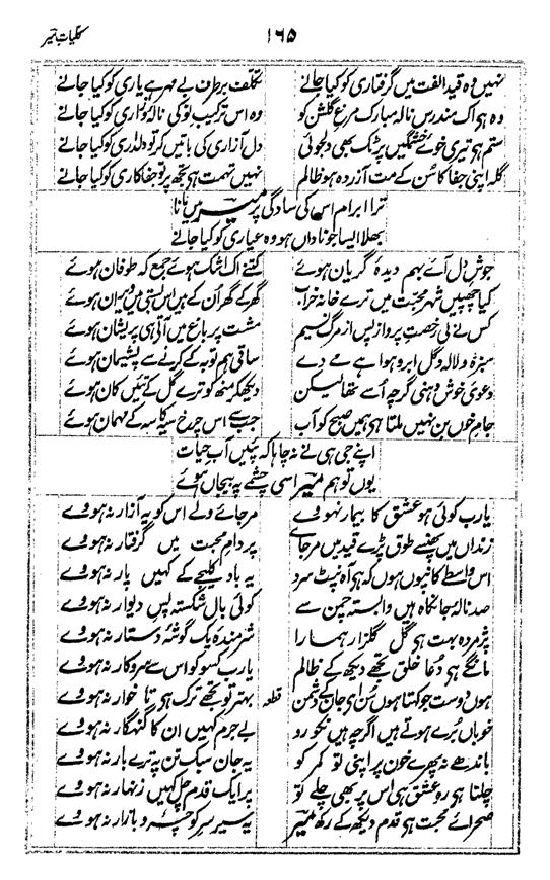 ۱۶۵
کلیات میر
نہیں وہ قید الفت میں گرفتاری کو کیا جانے
تکلف برطرف بے مہر ہے یاری کو کیا جانے
وہ ہو اک مندرس نالہ مبارک مرغ گلشن کو
وہ اس ترکیب نو کی نالہ و زاری کو کیا جانے
ستم ہو تیری خوئے خشمگیں پر ٹک بھی دلجوئی
دل آزاری کی باتیں کر تو دلداری کو کیا جانے
گلہ اپنی جفا کا سن کے مت آزردہ ہو ظالم
نہیں تہمت ہو تجھ پر تو جفاکاری کو کیا جانے
ترا ابرام اس کی سادگی پر میر میں مانا
بھلا ایسا جو ناداں ہو وہ عیاری کو کیا جانے
جوش دل آئے بہم دیدۂ گریان ہوئے
کتنے اک اشک ہوئے جمع کہ طوفان ہوئے
کیا چھپیں شہر محبت میں ترے خانہ خراب
گھر کے گھر اُن کے ہیں اس بستی میں ویران ہوئے
کس نے لی رخصت پرواز پس از مرگ نسیم
مشت پر باغ میں آتے ہی پریشان ہوئے
سبزہ و لالہ و گل ابر و ہوا ہے مے دے
ساقی ہم توبہ کے کرنے سے پشیمان ہوئے
دعوی خوش دہنی گرچہ اُسے تھا لیکن
دیکھ کر منھ کو ترے گل کے تئیں کان ہوئے
جام خوں بن نہیں ملتا ہی ہمیں صبح کو آب
جب سے اس چرخ سیہ کاسہ کے مہمان ہوئے
اپنے جی ہی نے نہ چاہا کہ پئیں آب حیات
یوں تو ہم میر اسی چشمے پہ بیجاں ہوئے
یارب کوئی ہو عشق کا بیمار نہووے
مرجائے ولے اس کو یہ آزار نہ ہووے
زنداں میں پھنسے طوق پڑے قید میں مرجائے
پر دام محبت میں گرفتار نہ ہووے
اس واسطے کانپوں ہوں کہ ہی آہ نپٹ سرد
یہ باد کلیجے کے کہیں پار نہ ہووے
صد نالہ جانکاہ ہیں وابستہ چمن سے
کوئی بال شکستہ پس دیوار نہ ہووے
پژمردہ بہت ہی گل گلزار ہمارا
شرمندہ یک گوشۂ دستار نہ ہووے
مانگے ہی دعا خلق تجھے دیکھ کے ظالم
یارب کسو کو اس سے سروکار نہ ہووے
ہوں دوست جو کہتا ہوں سُن ای جان کے دشمن
قطعہ
بہتر تو تجھے ترک ہو تا خوار نہ ہووے
خوباں بُرے ہوتے ہیں اگرچہ ہیں نکورو
بے جرم کہیں ان کا گنہگار نہ ہووے
باندھے نہ پھرے خون پر اپنی تو کمر کو
یہ جان سبک تن پہ ترے بار نہ ہووے
چلتا ہو رہ عشق ہی اس پر بھی چلے تو
پر ایک قدم چل کہیں زنہار نہ ہووے
صحرائے محبت ہی قدم دیکھ کے رکھ میر
یہ سیر سر کوچہ و بازار نہ ہووے